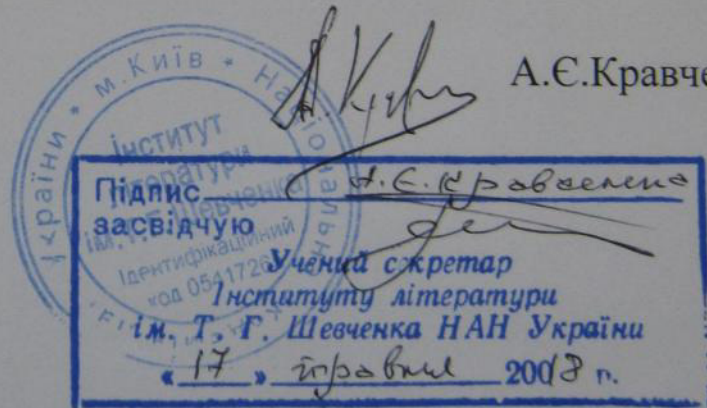 А.Є.Кравче
м.Київ * Націонал
країни *
Інститут
літератури
ім. Т.Г.Шевченка
Ідентифікаційний
код 0541726
Підпис А.Є.Кравченка
засвідчую
Учений секретар
Інституту літератури
ім. Т. Г. Шевченка НАН України
« 17 » травня 20018 г.